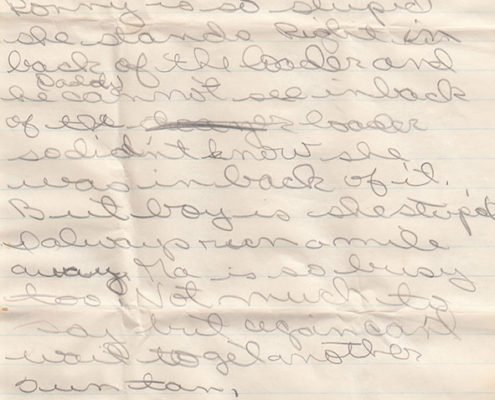 is so stupid
she stands right in
back of the loader and
Daddy
he cannot see in back
of the loader
so didnt know she
was in back of it.
But boy is she stupid
I always run a mile
away. Ma is so busy
too. Not much to
say but again cant
wait to get another
suntan,